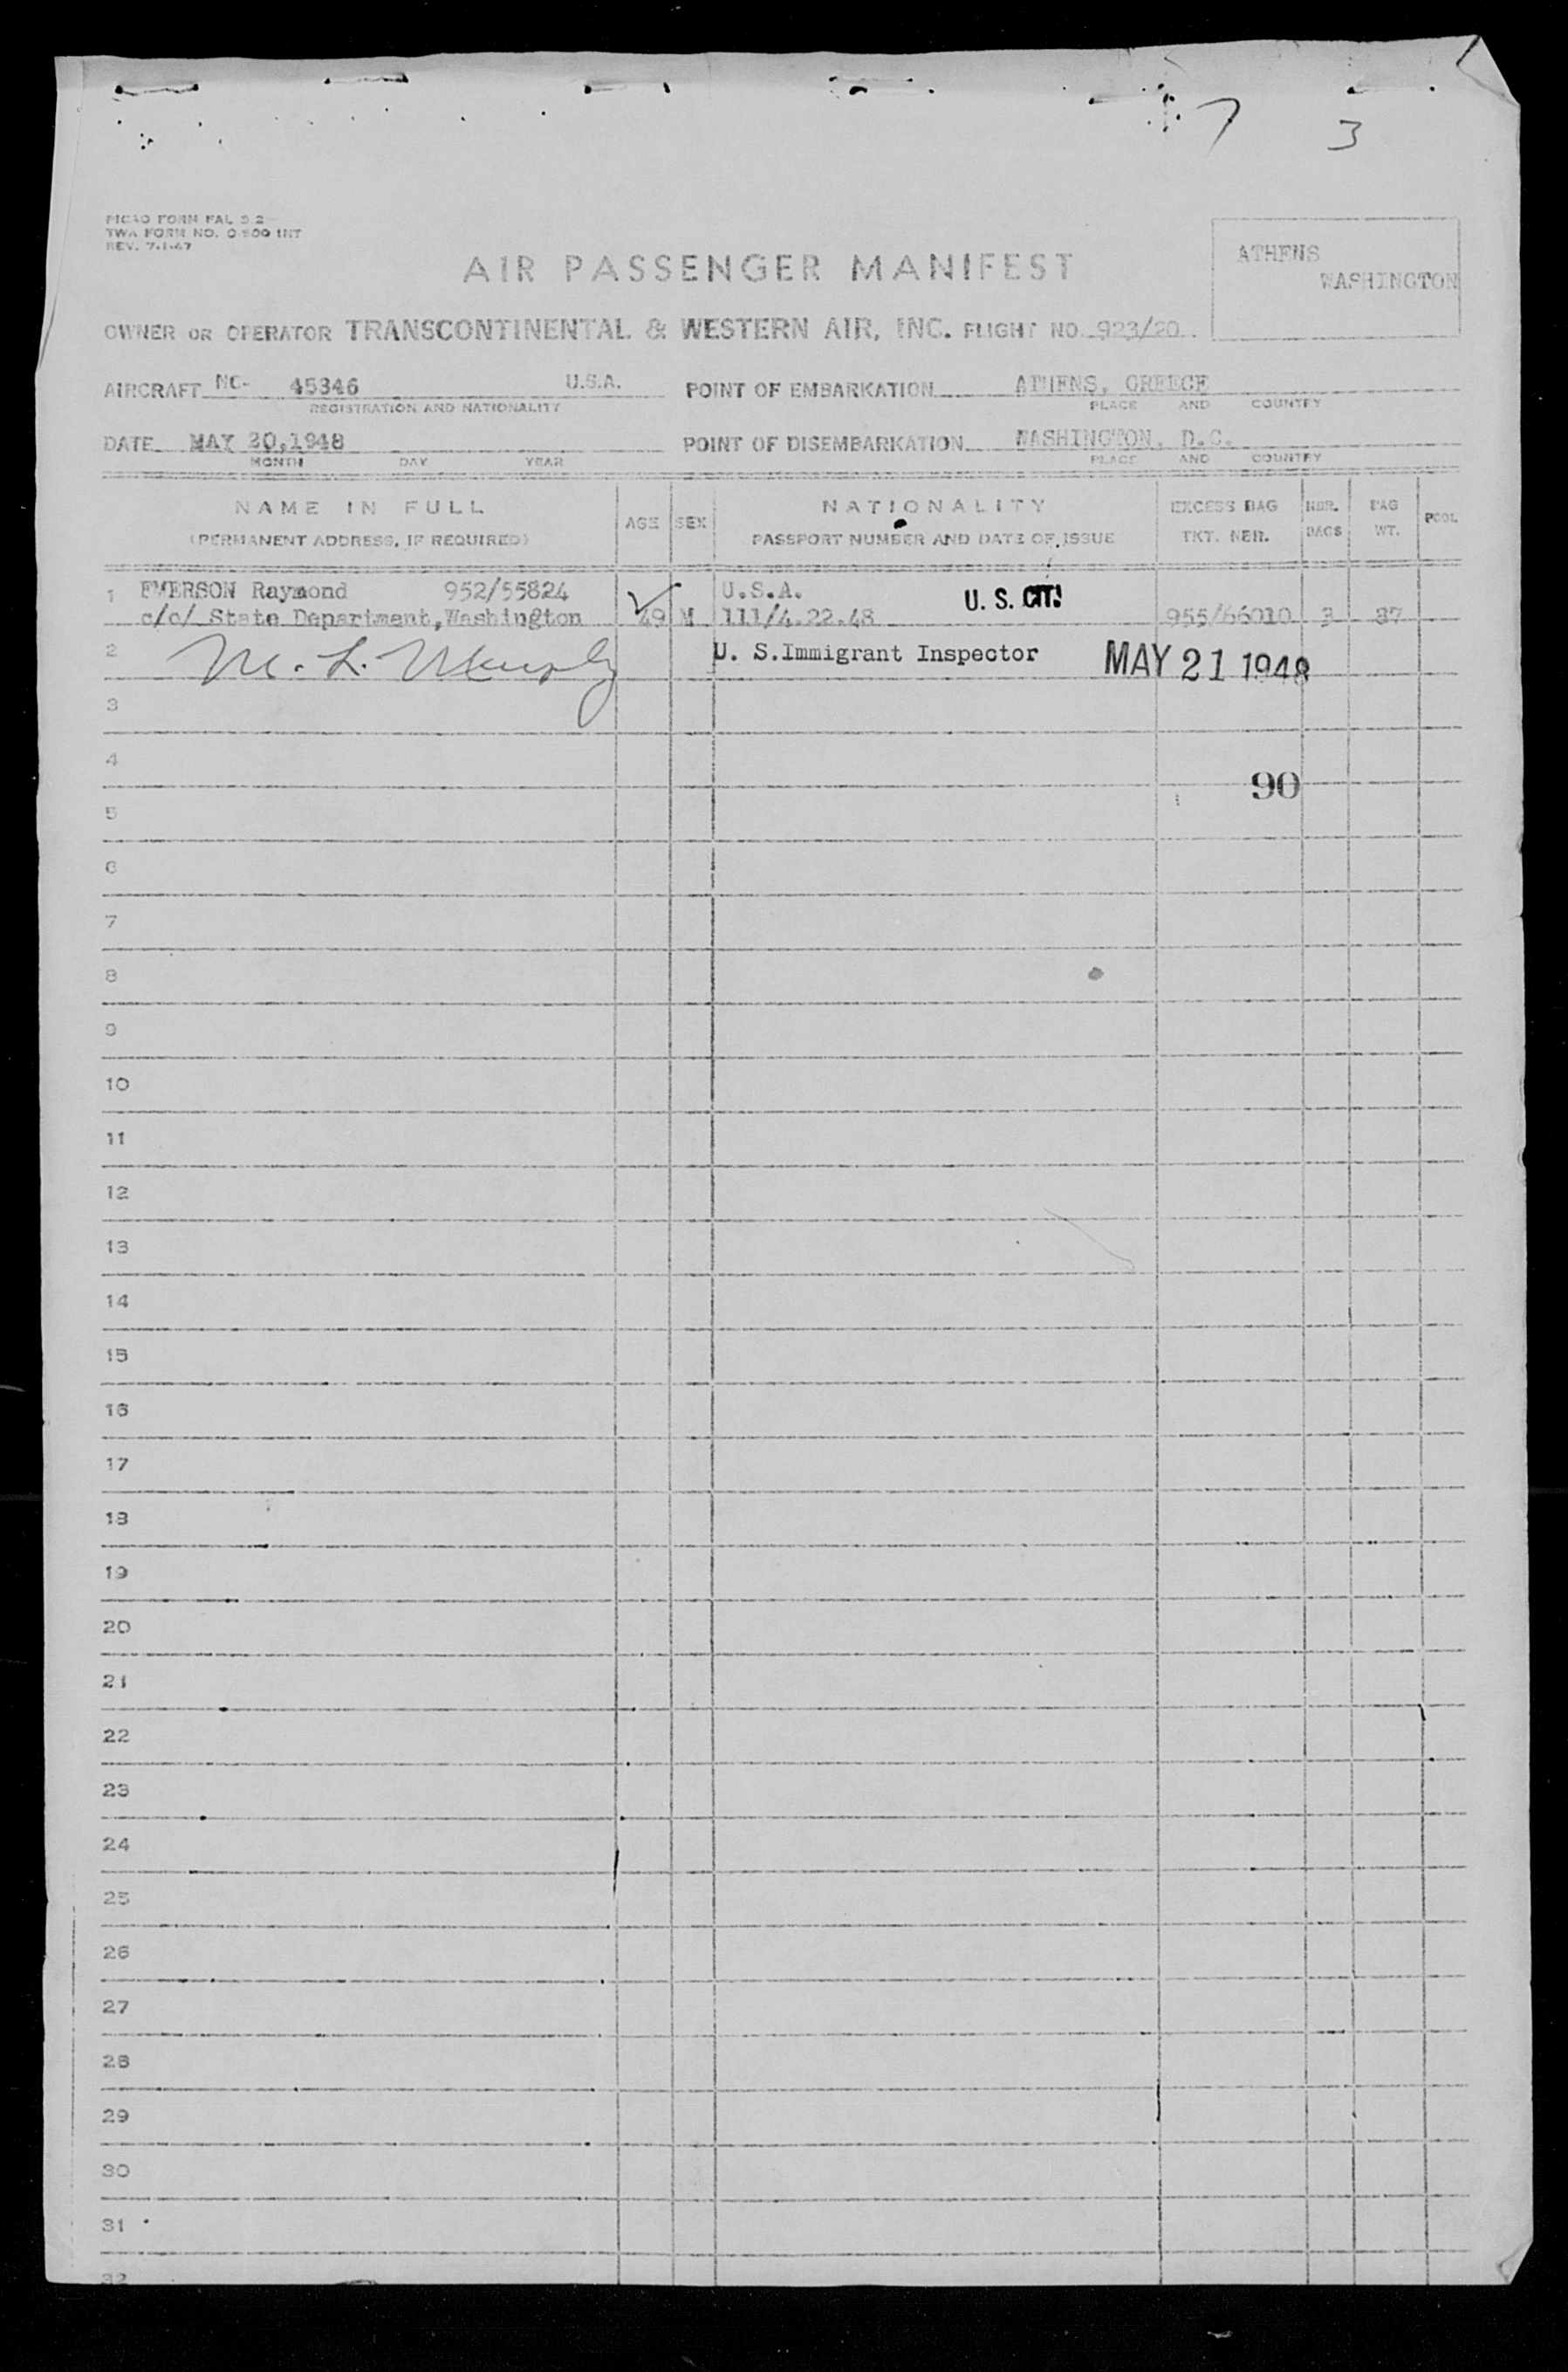 7 3
PICAO FORM FAL 5.2
TWA FORM NO. O-500 INT
REV. 7-1-47
AIR PASSENGER MANIFEST
ATHENS
WASHINGTON
OWNER OR OPERATOR TRANSCONTINENTAL & WESTERN AIR, INC. FLIGHT NO. 923/20
AIRCRAFT NC- 45346 U.S.A. POINT OF EMBARKATION ATHENS, GREECE
REGISTRATION AND NATIONALITY PLACE AND COUNTRY
DATE MAY 20,1948 POINT OF DISEMBARKATION WASHINGTON, D.C.
MONTH DAY YEAR PLACE AND COUNTRY
NAME IN FULL AGE SEX NATIONALITY EXCESS BAG NBR. BAG POOL
(PERMANENT ADDRESS, IF REQUIRED) PASSPORT NUMBER AND DATE OF ISSUE TKT. NBR. BAGS WT.
1 EMERSON Raymond 952/55824 U.S.A. U. S. CIT.
c/o/ State Department,Washington 49 M 111/4.22.48 955/66010 3 37
2 M. L. Murphy U. S.Immigrant Inspector MAY 21 1948
3
4
90
5
6
7
8
9
10
11
12
13
14
15
16
17
18
19
20
21
22
23
24
25
26
27
28
29
30
31
32